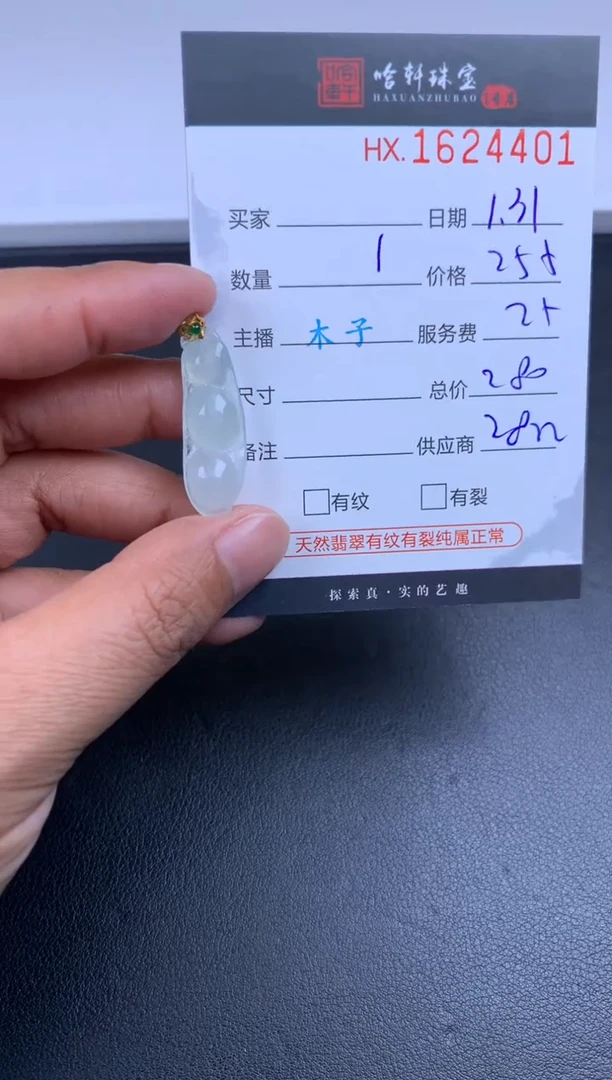 哈轩珠宝
HAXUANZHUBAO
HX.1624401
买家 日期 1.31
数量 1 价格 255
主播 木子 服务费 25
尺寸 总价 280
备注 供应商
有纹 有裂
天然翡翠有纹有裂纯属正常
探索真·实的艺趣